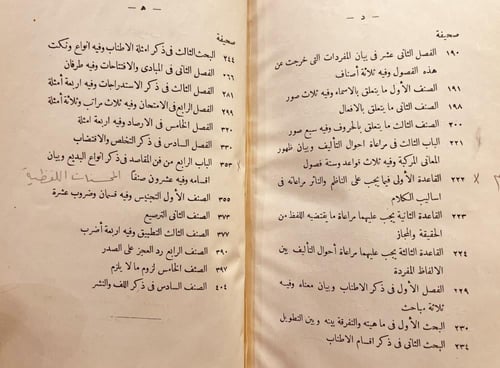 - د -
صحيفة
١٩٠ الفصل الثانى عشر فى بيان المفردات التى خرجت عن
هذه الفصول وفيه ثلاثة أصناف
١٩١ الصنف الأول ما يتعلق بالاسماء وفيه ثلاث صور
١٩٨ الصنف الثانى ما يتعلق بالافعال
٢٠٠ الصنف الثالث ما يتعلق بالحروف وفيه سبع صور
٢٢١ الباب الثالث فى مراعاة احوال التأليف وبيان ظهور
المعانى المركبة وفيه ثلاث قواعد وستة فصول
٢٢٢ القاعدة الأولى فيما يجب على الناظم والناثر مراعاته فى
اساليب الكلام
٢٢٣ القاعدة الثانية يجب عليهما مراعاة ما يقتضيه اللفظ من
الحقيقة والمجاز
٢٢٤ القاعدة الثالثة يجب عليهما مراعاة أحوال التأليف بين
الالفاظ المفردة
٢٢٩ الفصل الأول فى ذكر الاطناب وبيان معناه وفيه
ثلاثة مباحث
٢٣٠ البحث الأول فى ماهيته والتفرقة بينه وبين التطويل
٢٣٤ البحث الثانى فى ذكر اقسام الاطناب
- ه -
صحيفة
٢٤٤ البحث الثالث فى ذكر امثلة الاطناب وفيه انواع ونكت
٢٦٦ الفصل الثانى فى المبادى والافتتاحات وفيه طرفان
٢٨١ الفصل الثالث فى ذكر الاستدراجات وفيه اربعة أمثلة
٢٩٩ الفصل الرابع فى الامتحان وفيه ثلاث مراتب وثلاثة أمثلة
٣٢٠ الفصل الخامس فى الارصاد وفيه اربعة امثلة
٣٣٠ الفصل السادس فى ذكر التخلص والاقتضاب
٣٥٣ الباب الرابع من فن المقاصد فى ذكر انواع البديع وبيان
اقسامه وفيه عشرون صنفا المحسنات اللفظية
٣٥٥ الصنف الأول التجنيس وفيه قسمان وضروب عشرة
٣٧٣ الصنف الثانى الترصيع
٣٧٧ الصنف الثالث التطبيق وفيه اربعة أضرب
٣٩٠ الصنف الرابع رد العجز على الصدر
٣٩٧ الصنف الخامس لزوم ما لا يلزم
٤٠٤ الصنف السادس فى ذكر اللف والنشر